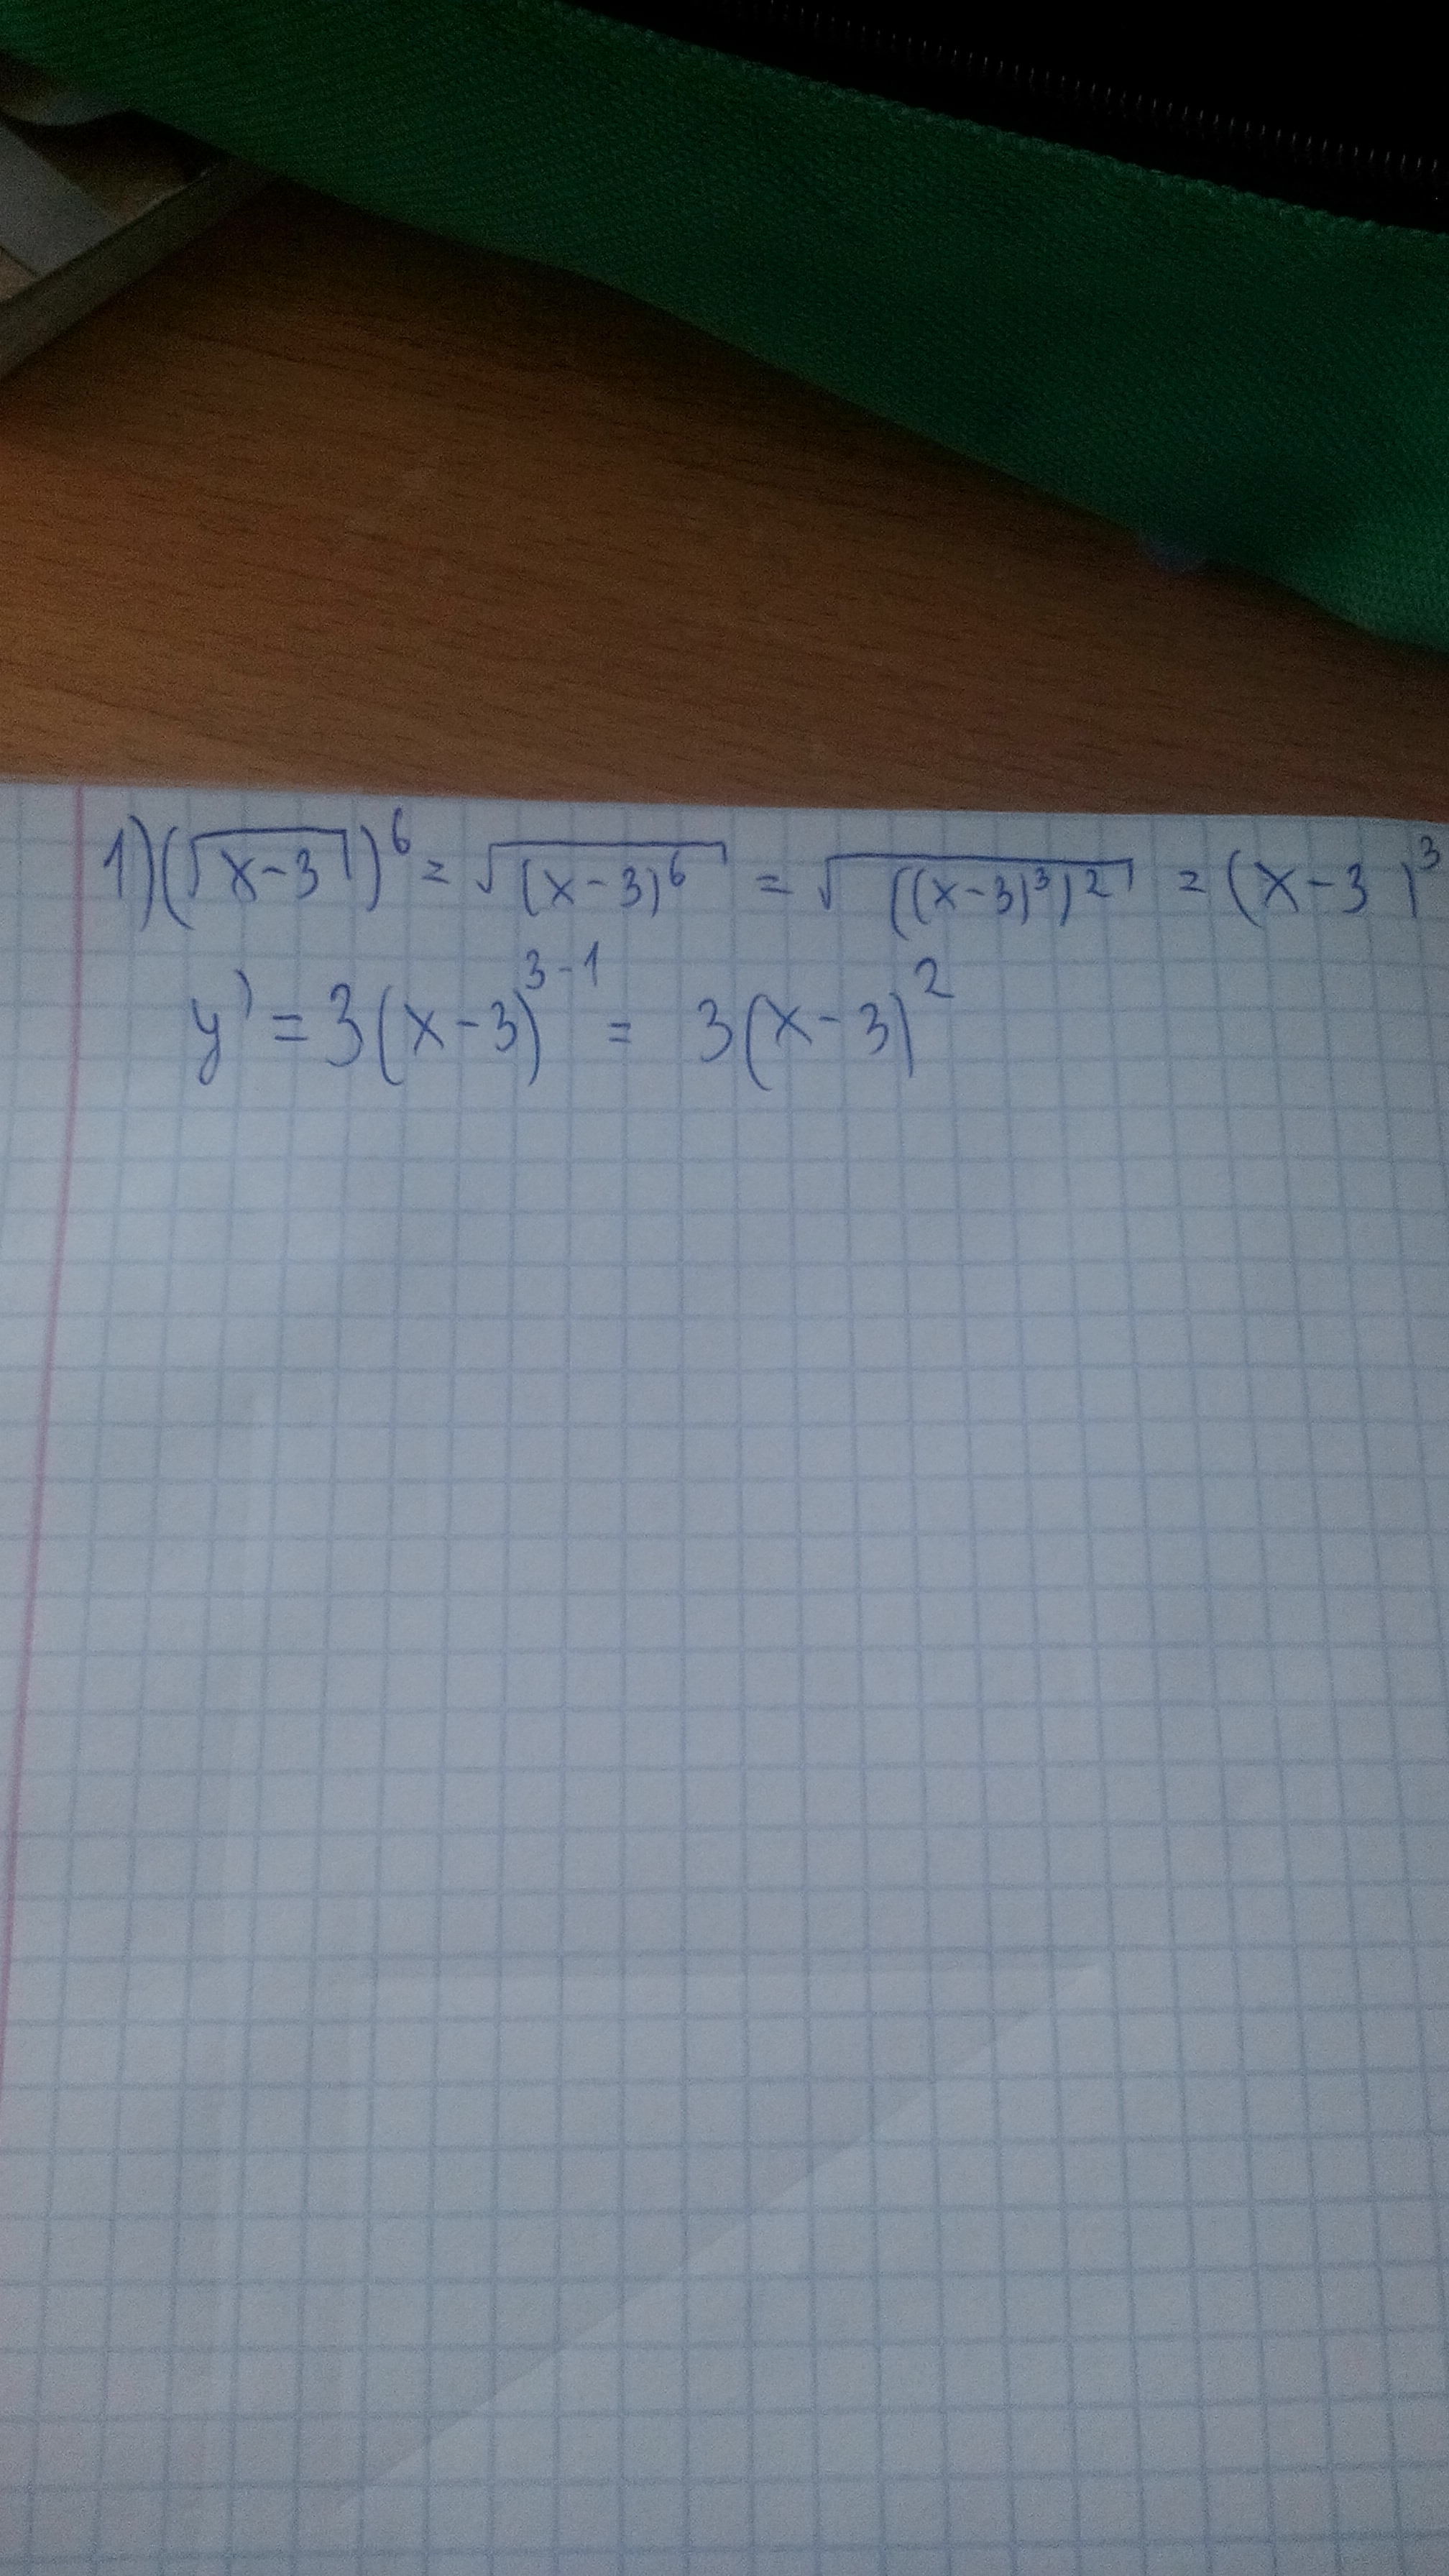 1) (√(x-3))⁶ = √((x-3)⁶) = √(((x-3)³)²) = (x-3)³
y' = 3(x-3)³⁻¹ = 3(x-3)²